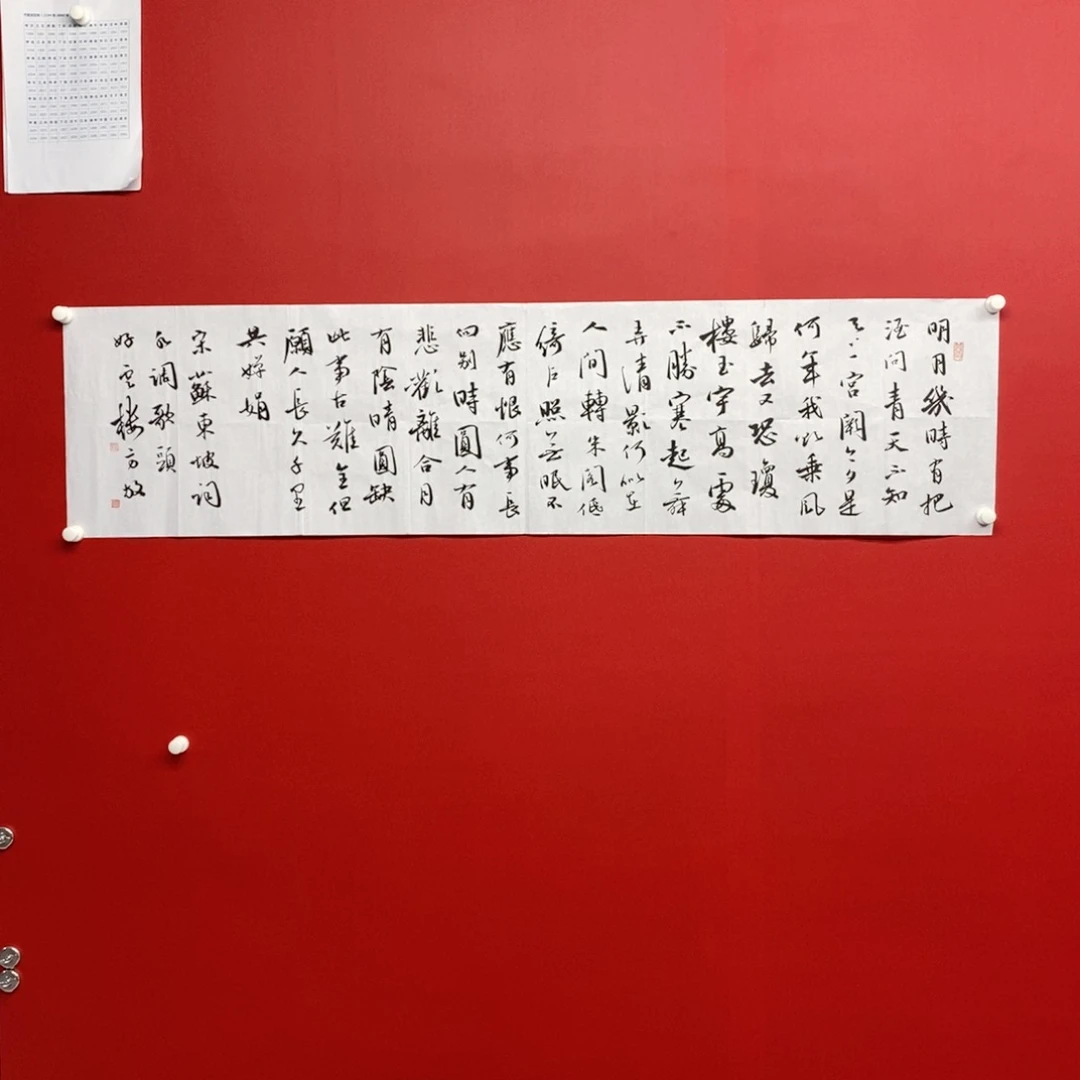 明月幾時有把
酒問青天不知
天上宮闕今夕是
何年我欲乘風
歸去又恐瓊
樓玉宇高處
不勝寒起舞
弄清影何似在
人間轉朱閣低
綺戶照無眠不
應有恨何事長
向別時圓人有
悲歡離合月
有陰晴圓缺
此事古難全但
願人長久千里
共嬋娟
宋蘇東坡詞
水調歌頭
好雲楼方